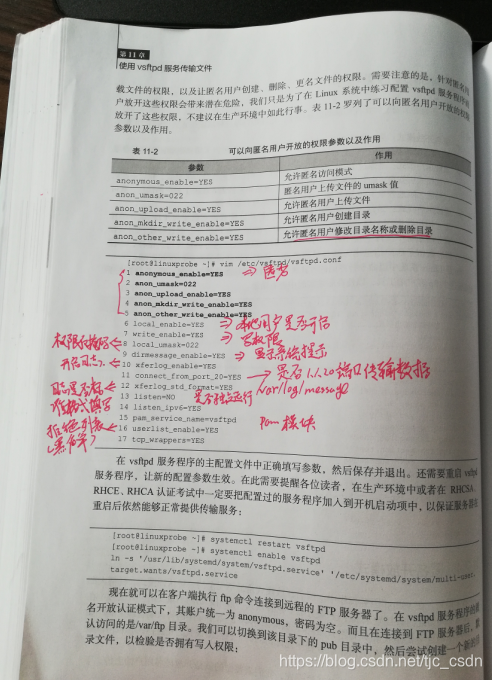 第11章
使用 vsftpd 服务传输文件
载文件的权限，以及让匿名用户创建、删除、更名文件的权限。需要注意的是，针对匿名用
户放开这些权限会带来潜在危险，我们只是为了在 Linux 系统中练习配置 vsftpd 服务程序而
放开了这些权限，不建议在生产环境中如此行事。表 11-2 罗列了可以向匿名用户开放的权限
参数以及作用。
表 11-2 可以向匿名用户开放的权限参数以及作用
参数 作用
anonymous_enable=YES 允许匿名访问模式
anon_umask=022 匿名用户上传文件的 umask 值
anon_upload_enable=YES 允许匿名用户上传文件
anon_mkdir_write_enable=YES 允许匿名用户创建目录
anon_other_write_enable=YES 允许匿名用户修改目录名称或删除目录
[root@linuxprobe ~]# vim /etc/vsftpd/vsftpd.conf
1 anonymous_enable=YES ⇒ 匿名
2 anon_umask=022
3 anon_upload_enable=YES
4 anon_mkdir_write_enable=YES
5 anon_other_write_enable=YES
6 local_enable=YES ⇒ 本地用户是否开启
7 write_enable=YES ⇒ 写权限
8 local_umask=022
9 dirmessage_enable=YES ⇒ 显示系统提示
10 xferlog_enable=YES
11 connect_from_port_20=YES 是否 端口传输数据
12 xferlog_std_format=YES /var/log/message
13 listen=NO 是否独立运行
14 listen_ipv6=YES
15 pam_service_name=vsftpd Pam 模块
16 userlist_enable=YES
17 tcp_wrappers=YES
权限
开启日志
拒绝列表
在 vsftpd 服务程序的主配置文件中正确填写参数，然后保存并退出。还需要重启 vsftpd
服务程序，让新的配置参数生效。在此需要提醒各位读者，在生产环境中或者在 RHCSA、
RHCE、RHCA 认证考试中一定要把配置过的服务程序加入到开机启动项中，以保证服务器在
重启后依然能够正常提供传输服务：
[root@linuxprobe ~]# systemctl restart vsftpd
[root@linuxprobe ~]# systemctl enable vsftpd
ln -s '/usr/lib/systemd/system/vsftpd.service' '/etc/systemd/system/multi-user.
target.wants/vsftpd.service
现在就可以在客户端执行 ftp 命令连接到远程的 FTP 服务器了。在 vsftpd 服务程序的匿
名开放认证模式下，其账户统一为 anonymous，密码为空。而且在连接到 FTP 服务器后，默
认访问的是/var/ftp 目录。我们可以切换到该目录下的 pub 目录中，然后尝试创建一个新的目
录文件，以检验是否拥有写入权限：
https://blog.csdn.net/tjc_csdn